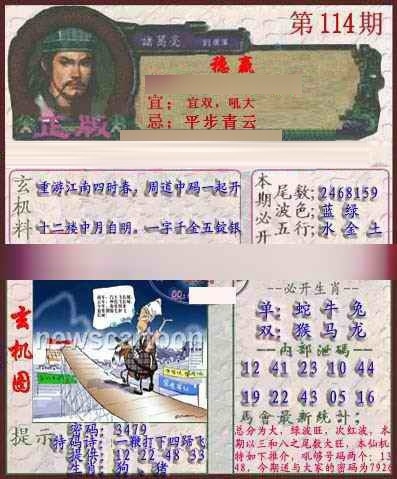 诸葛亮
第114期
稳赢
宜：宜双，吼大
忌：平步青云
正版
玄机料
重游江南四时春，周道中码一起开
十二楼中月自明，一字千金五锭银
本期必开
尾数：2468159
波色：蓝 绿
五行：水 金 土
玄机图
newscartoon
必开生肖
单：蛇 牛 兔
双：猴 马 龙
内部泄码
12 41 23 10 44
19 22 43 05 16
马会最新统计：
总分为大，绿波旺，次红波，本
期以三和八之尾数大旺，本仙机
特如下推介，吼够号码两个：13
48，今期述与大家的密码为7926
提示
密码：3479
特码诗：一鞭打下四蹄飞
提供：12 22 48 33
生肖：狗 猪